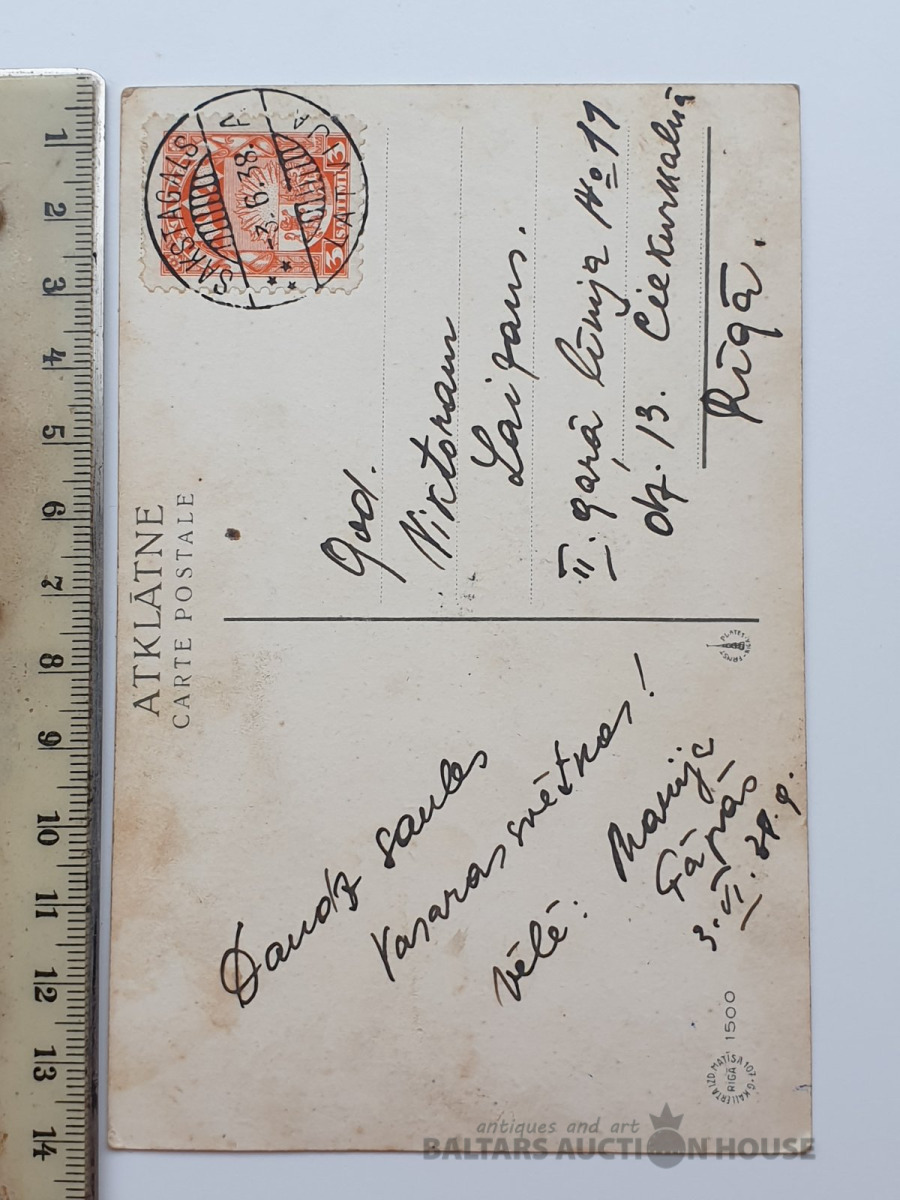 ATKLĀTNE
CARTE POSTALE
SAKSTAGALS
-3.6.38.
LATVIJA
3 3
LATVIJA
Daudz saules
Vasarassvētkos!
vēlē: Marija
3. VI. 38. g.
God.
Viktoram
II. gaŗā līnija No 11
dz. 13. Ciekurkalnā
Rīgā.
IZD. MATĪSA 107
RĪGĀ
1500
1 2 3 4 5 6 7 8 9 10 11 12 13 14
antiques and art
BALTARS AUCTION HOUSE